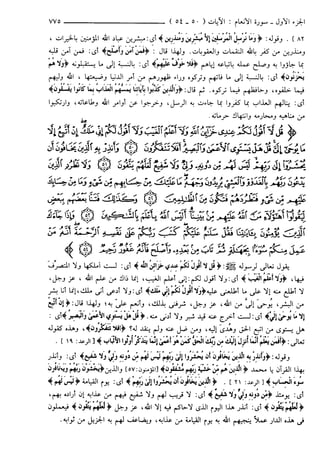 الجزء الأول - سورة الأنعام : الآيات (٥٠ - ٥٤) ٧٧٥
٨٢ . وقوله : ﴿وَمَا نُرْسِلُ الْمُرْسَلِينَ إِلَّا مُبَشِّرِينَ وَمُنذِرِينَ﴾ أي : مبشرين عباد الله المؤمنين بالخيرات ،
ومنذرين من كفر بالله النقمات والعقوبات. ولهذا قال : ﴿فَمَنْ آمَنَ وَأَصْلَحَ﴾ أي : فمن آمن قلبه
بما جاؤوا به وصلح عمله باتباعه إياهم ﴿فَلَا خَوْفٌ عَلَيْهِمْ﴾ أي : بالنسبة إلى ما يستقبلونه ﴿وَلَا هُمْ
يَحْزَنُونَ﴾ أي : بالنسبة إلى ما فاتهم وتركوه وراء ظهورهم من أمر الدنيا وصنيعتها ، الله وليهم
فيما خلفوه، وحافظهم فيما تركوه. ثم قال : ﴿وَالَّذِينَ كَذَّبُوا بِآيَاتِنَا يَمَسُّهُمُ الْعَذَابُ بِمَا كَانُوا يَفْسُقُونَ﴾
أي : ينالهم العذاب بما كفروا بما جاءت به الرسل، وخرجوا عن أوامر الله وطاعاته، وارتكبوا
من مناهيه ومحارمه وانتهاك حرماته .
﴿قُل لَّا أَقُولُ لَكُمْ عِندِي خَزَائِنُ اللَّهِ وَلَا أَعْلَمُ الْغَيْبَ وَلَا أَقُولُ لَكُمْ إِنِّي مَلَكٌ إِنْ أَتَّبِعُ إِلَّا
مَا يُوحَى إِلَيَّ قُلْ هَلْ يَسْتَوِي الْأَعْمَى وَالْبَصِيرُ أَفَلَا تَتَفَكَّرُونَ ۝٥٠ وَأَنذِرْ بِهِ الَّذِينَ يَخَافُونَ أَن
يُحْشَرُوا إِلَى رَبِّهِمْ لَيْسَ لَهُم مِّن دُونِهِ وَلِيٌّ وَلَا شَفِيعٌ لَّعَلَّهُمْ يَتَّقُونَ ۝٥١ وَلَا تَطْرُدِ الَّذِينَ
يَدْعُونَ رَبَّهُم بِالْغَدَاةِ وَالْعَشِيِّ يُرِيدُونَ وَجْهَهُ مَا عَلَيْكَ مِنْ حِسَابِهِم مِّن شَيْءٍ وَمَا مِنْ حِسَابِكَ
عَلَيْهِم مِّن شَيْءٍ فَتَطْرُدَهُمْ فَتَكُونَ مِنَ الظَّالِمِينَ ۝٥٢ وَكَذَلِكَ فَتَنَّا بَعْضَهُم بِبَعْضٍ
لِّيَقُولُوا أَهَؤُلَاءِ مَنَّ اللَّهُ عَلَيْهِم مِّن بَيْنِنَا أَلَيْسَ اللَّهُ بِأَعْلَمَ بِالشَّاكِرِينَ ۝٥٣ وَإِذَا جَاءَكَ
الَّذِينَ يُؤْمِنُونَ بِآيَاتِنَا فَقُلْ سَلَامٌ عَلَيْكُمْ كَتَبَ رَبُّكُمْ عَلَى نَفْسِهِ الرَّحْمَةَ أَنَّهُ مَنْ عَمِلَ
مِنكُمْ سُوءًا بِجَهَالَةٍ ثُمَّ تَابَ مِن بَعْدِهِ وَأَصْلَحَ فَأَنَّهُ غَفُورٌ رَّحِيمٌ ۝٥٤﴾
يقول تعالى لرسوله ﷺ : ﴿قُل لَّا أَقُولُ لَكُمْ عِندِي خَزَائِنُ اللَّهِ﴾ أي : لست أملكها ولا أتصرف
فيها، ﴿وَلَا أَعْلَمُ الْغَيْبَ﴾ أي : ولا أقول لكم : إني أعلم الغيب، إنما ذاك من علم الله ، عز وجل،
لا أطلع منه إلا على ما أطلعني عليه ﴿وَلَا أَقُولُ لَكُمْ إِنِّي مَلَكٌ﴾ أي : ولا أدعي أني ملك، إنما أنا بشر
من البشر، يُوحَى إليَّ من الله، عز وجل، شرفني بذلك، وأنعم علي به؛ ولهذا قال : ﴿إِنْ أَتَّبِعُ
إِلَّا مَا يُوحَى إِلَيَّ﴾ أي : لست أخرج عنه قيد شبر ولا أدنى منه. ﴿قُلْ هَلْ يَسْتَوِي الْأَعْمَى وَالْبَصِيرُ﴾ أي :
هل يستوي من اتبع الحق وهُدي إليه، ومن ضل عنه ولم ينقد له؟ ﴿أَفَلَا تَتَفَكَّرُونَ﴾، وهذه كقوله
تعالى : ﴿أَفَمَن يَعْلَمُ أَنَّمَا أُنزِلَ إِلَيْكَ مِن رَّبِّكَ الْحَقُّ كَمَنْ هُوَ أَعْمَى إِنَّمَا يَتَذَكَّرُ أُولُو الْأَلْبَابِ﴾ [الرعد: ١٩] .
وقوله : ﴿وَأَنذِرْ بِهِ الَّذِينَ يَخَافُونَ أَن يُحْشَرُوا إِلَى رَبِّهِمْ لَيْسَ لَهُم مِّن دُونِهِ وَلِيٌّ وَلَا شَفِيعٌ﴾ أي : وأنذر
بهذا القرآن يا محمد ﴿الَّذِينَ هُم مِّنْ خَشْيَةِ رَبِّهِم مُّشْفِقُونَ﴾ [المؤمنون: ٥٧] والذين ﴿يَخْشَوْنَ رَبَّهُمْ وَيَخَافُونَ
سُوءَ الْحِسَابِ﴾ [الرعد: ٢١] . ﴿الَّذِينَ يَخَافُونَ أَن يُحْشَرُوا إِلَى رَبِّهِمْ﴾ أي : يوم القيامة ﴿لَيْسَ لَهُم﴾
أي : يومئذ ﴿مِّن دُونِهِ وَلِيٌّ وَلَا شَفِيعٌ﴾ أي : لا قريب لهم ولا شفيع فيهم من عذابه إن أراده بهم،
﴿لَّعَلَّهُمْ يَتَّقُونَ﴾ أي : أنذر هذا اليوم الذي لا حاكم فيه إلا الله، عز وجل ﴿لَّعَلَّهُمْ يَتَّقُونَ﴾ فيعملون
في هذه الدار عملاً ينجيهم الله به يوم القيامة من عذابه، ويضاعف لهم به الجزيل من ثوابه.